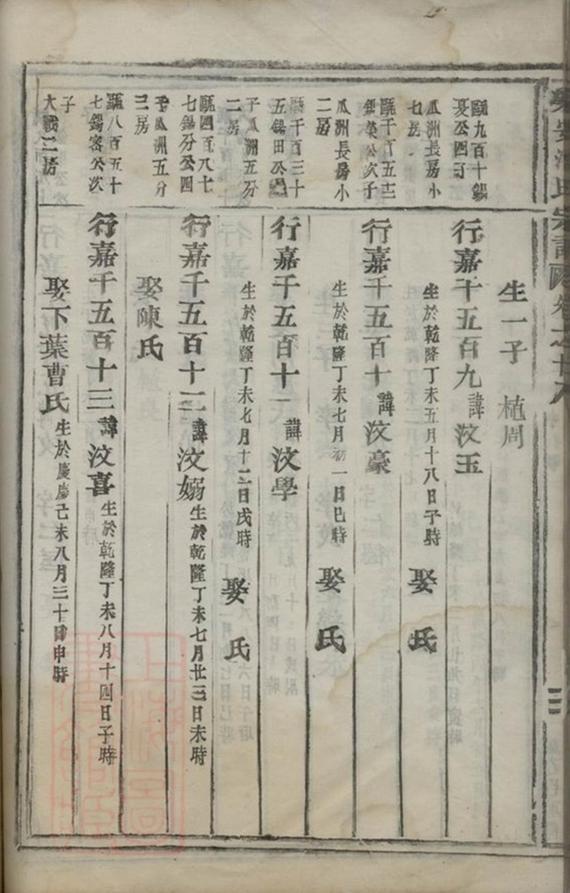 生一子 植周
行嘉千五百九 諱汶玉
生於乾隆丁未五月十八日子時 娶 氏
行嘉千五百十 諱汶豪
生於乾隆丁未七月初一日巳時 娶 氏
行嘉千五百十一 諱汶學
生於乾隆丁未七月十二日戌時 娶 氏
行嘉千五百十二 諱汶嫋 生於乾隆丁未七月廿三日未時
娶陳氏
行嘉千五百十三 諱汶喜 生於乾隆丁未八月十四日子時
娶下葉曹氏 生於嘉慶己未八月三十日申時
瓜洲長房小
七房
瓜洲長房小
二房
五錫田公
子瓜洲五分
二房
甌四百八十
七錫分公四
子瓜洲五分
三房
甌八百五十
七錫容公次
子
大戰二房